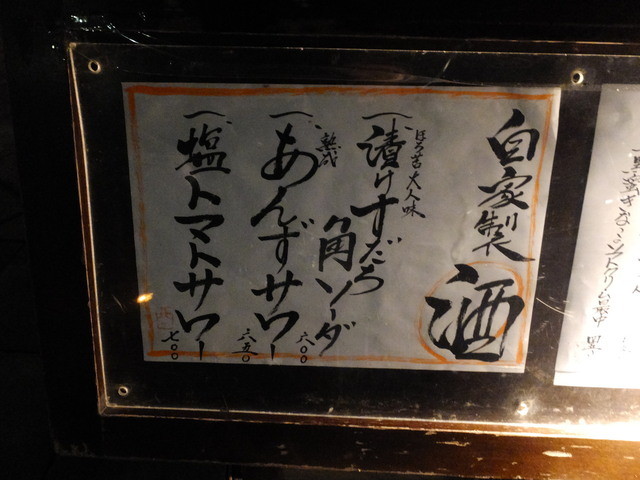 自家製 酒
ほろ苦大人味
一、漬けすだち
角ソーダ
六〇〇
熟成
一、あんずサワー
六五〇
一、塩トマトサワー
七〇〇